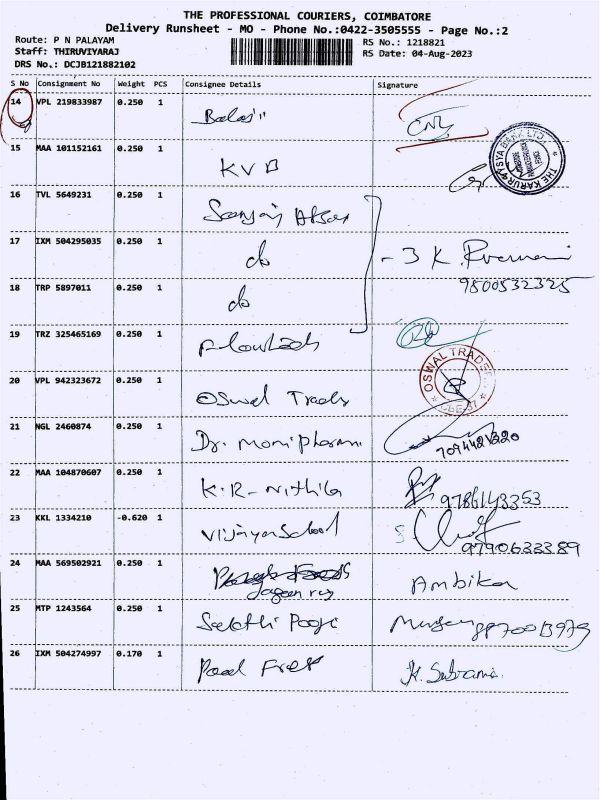 THE PROFESSIONAL COURIERS, COIMBATORE
Delivery Runsheet - MO - Phone No.:0422-3505555 - Page No.:2
Route: P N PALAYAM
Staff: THIRUVIYARAJ
DRS No.: DCJB121882102
RS No.: 1218821
RS Date: 04-Aug-2023
S No Consignment No Weight PCS Consignee Details Signature
14 VPL 219833987 0.250 1 Balaji
15 MAA 101152161 0.250 1 KVB
THE KARUR VYSYA BANK LTD
16 TVL 5649231 0.250 1 Sanjay
17 IXM 504295035 0.250 1 do - 3 K.
18 TRP 5897011 0.250 1 do 9500532325
19 TRZ 325465169 0.250 1
20 VPL 942323672 0.250 1 Oswal Trads
OSWAL TRADE
CBE-37
21 NGL 2460874 0.250 1 Dr. moni pharm 7094421220
22 MAA 104870607 0.250 1 K.R- Nithila 9786143353
23 KKL 1334210 -0.620 1 Vijaya School 9790633389
24 MAA 569502921 0.250 1 Ambika
25 MTP 1243564 0.250 1 Sakthi Pooja
26 IXM 504274997 0.170 1 K. Subrama